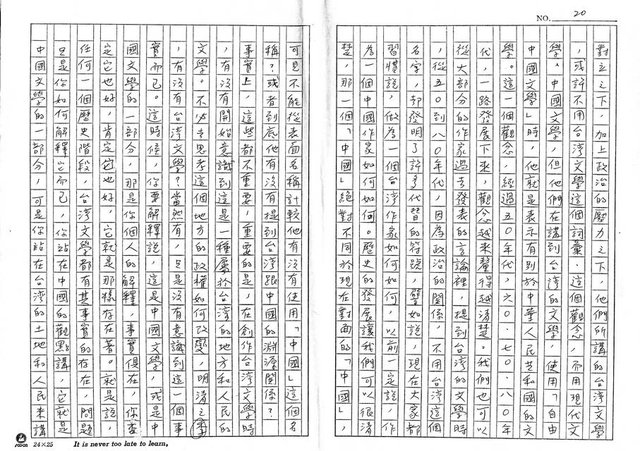 NO. 20
對立之下，加上政治的壓力之下，他們所講的台灣文學
，或許不用台灣文學這個詞彙、這個觀念，而用現代文
學、中國文學，但他們在講到台灣的文學、使用「自由
中國文學」時，他就是表示有別於中華人民共和國的文
學。這一個觀念，經過五〇年代，六〇、七〇、八〇年
代，一路發展下來，觀念越來釐得越清楚。我們也可以
從大部分的作家過去發表的言論裡，提到台灣的文學時
，從五〇到八〇年代，因為政治的關係，不用台灣這個
名字，卻發明了許多代替的符號，譬如說，現在大家都
習慣說，做為一個台灣作家如何如何，以前一定說，作
為一個中國作家如何如何。歷史的發展讓我們可以很清
楚，那一個「中國」絕對不同於現在對面的「中國」，
可是不能從表面名稱計較他有沒有使用「中國」這個名
稱？或者到底他有沒有提到台灣跟中國的淵源關係？
事實上，這些都不重要，重要的是，在創作台灣文學時
，有沒有開始意識到這是一種屬於台灣的地方和人民的
文學，不必去思考這個地方的政權如何改變，明清之季
，有沒有台灣文學？當然有，只是沒有意識到這一個事
實而已。這時候，你要解釋說，這是中國文學，或是中
國文學的一部分，那是你個人的解釋，事實俱在，你否
定它也好，肯定它也好，它就是那樣存在著。就是說，
任何一個歷史階段，台灣文學都有其事實的存在，問題
只是你如何解釋它而已，你站在中國的觀點講，它就是
中國文學的一部分，可是你站在台灣的土地和人民來講
24×25 It is never too late to learn,